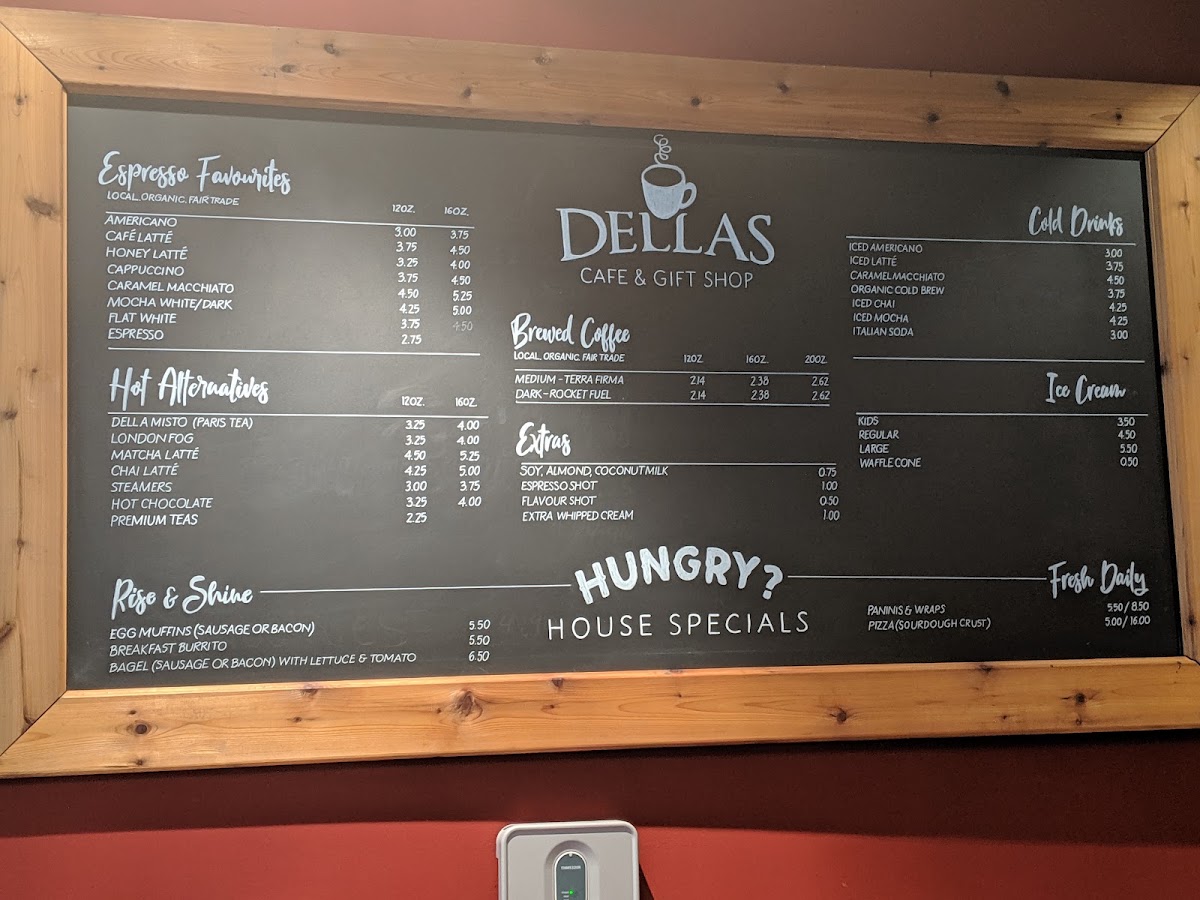 Espresso Favourites
LOCAL, ORGANIC, FAIR TRADE
12OZ. 16OZ.
AMERICANO 3.00 3.75
CAFÉ LATTÉ 3.75 4.50
HONEY LATTÉ 3.25 4.00
CAPPUCCINO 3.75 4.50
CARAMEL MACCHIATO 4.50 5.25
MOCHA WHITE/DARK 4.25 5.00
FLAT WHITE 3.75 4.50
ESPRESSO 2.75
Hot Alternatives
12OZ. 16OZ.
DELLA MISTO (PARIS TEA) 3.25 4.00
LONDON FOG 3.25 4.00
MATCHA LATTÉ 4.50 5.25
CHAI LATTÉ 4.25 5.00
STEAMERS 3.00 3.75
HOT CHOCOLATE 3.25 4.00
PREMIUM TEAS 2.25
DELLAS
CAFE & GIFT SHOP
Brewed Coffee
LOCAL, ORGANIC, FAIR TRADE 12OZ. 16OZ. 20OZ.
MEDIUM - TERRA FIRMA 2.14 2.38 2.62
DARK - ROCKET FUEL 2.14 2.38 2.62
Extras
SOY, ALMOND, COCONUT MILK 0.75
ESPRESSO SHOT 1.00
FLAVOUR SHOT 0.50
EXTRA WHIPPED CREAM 1.00
Cold Drinks
ICED AMERICANO 3.00
ICED LATTÉ 3.75
CARAMEL MACCHIATO 4.50
ORGANIC COLD BREW 3.75
ICED CHAI 4.25
ICED MOCHA 4.25
ITALIAN SODA 3.00
Ice Cream
KIDS 3.50
REGULAR 4.50
LARGE 5.50
WAFFLE CONE 0.50
HUNGRY?
HOUSE SPECIALS
Rise & Shine
EGG MUFFINS (SAUSAGE OR BACON) 5.50
BREAKFAST BURRITO 5.50
BAGEL (SAUSAGE OR BACON) WITH LETTUCE & TOMATO 6.50
Fresh Daily
PANINIS & WRAPS 5.50 / 8.50
PIZZA (SOURDOUGH CRUST) 5.00 / 16.00